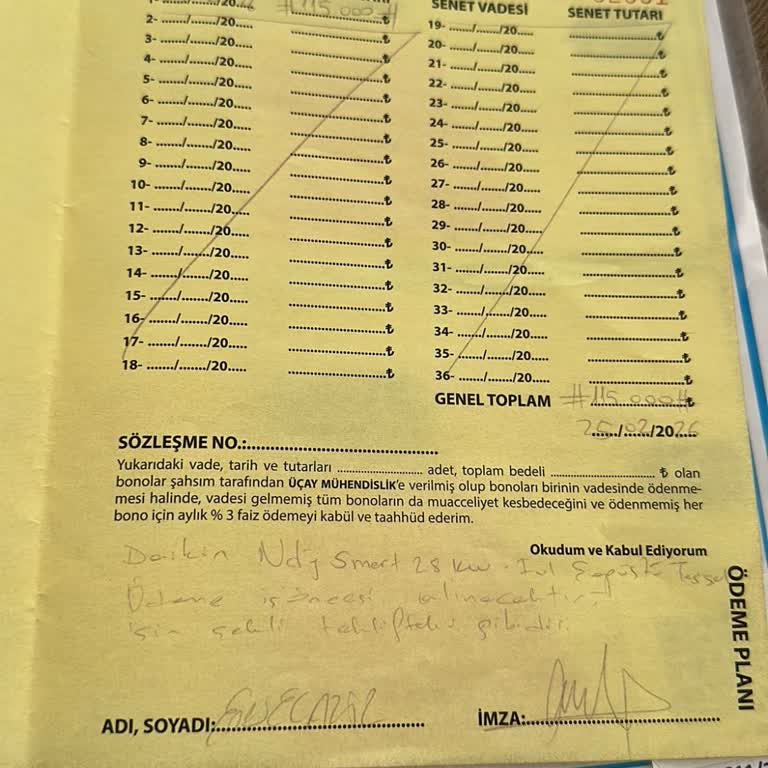 SENET VADESİ SENET TUTARI
#115.000#₺
2- ......./......./20..... ...........................₺
3- ......./......./20..... ...........................₺
4- ......./......./20..... ...........................₺
5- ......./......./20..... ...........................₺
6- ......./......./20..... ...........................₺
7- ......./......./20..... ...........................₺
8- ......./......./20..... ...........................₺
9- ......./......./20..... ...........................₺
10- ......./......./20..... ...........................₺
11- ......./......./20..... ...........................₺
12- ......./......./20..... ...........................₺
13- ......./......./20..... ...........................₺
14- ......./......./20..... ...........................₺
15- ......./......./20..... ...........................₺
16- ......./......./20..... ...........................₺
17- ......./......./20..... ...........................₺
18- ......./......./20..... ...........................₺
19- ......./......./20..... ...........................₺
20- ......./......./20..... ...........................₺
21- ......./......./20..... ...........................₺
22- ......./......./20..... ...........................₺
23- ......./......./20..... ...........................₺
24- ......./......./20..... ...........................₺
25- ......./......./20..... ...........................₺
26- ......./......./20..... ...........................₺
27- ......./......./20..... ...........................₺
28- ......./......./20..... ...........................₺
29- ......./......./20..... ...........................₺
30- ......./......./20..... ...........................₺
31- ......./......./20..... ...........................₺
32- ......./......./20..... ...........................₺
33- ......./......./20..... ...........................₺
34- ......./......./20..... ...........................₺
35- ......./......./20..... ...........................₺
36- ......./......./20..... ...........................₺
GENEL TOPLAM #115.000#₺
25/02/2026
SÖZLEŞME NO.:......................................
Yukarıdaki vade, tarih ve tutarları ...................... adet, toplam bedeli .......................... ₺ olan
bonolar şahsım tarafından ÜÇAY MÜHENDİSLİK'e verilmiş olup bonoları birinin vadesinde ödenme-
mesi halinde, vadesi gelmemiş tüm bonoların da muacceliyet kesbedeceğini ve ödenmemiş her
bono için aylık % 3 faiz ödemeyi kabül ve taahhüd ederim.
Okudum ve Kabul Ediyorum
Daikin Ndj Smart 28 kw.
Ödeme iş öncesi alınacaktır.
işin şekli teklifteki gibidir.
ADI, SOYADI:
İMZA:
ÖDEME PLANI